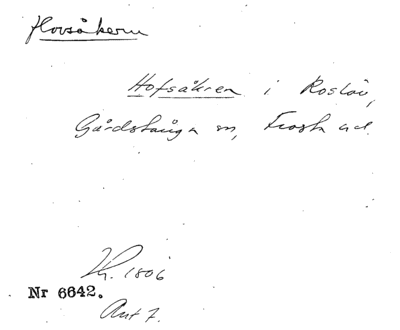 Hovsåkern
Hofsåkren i Roslöv,
Gårdstånga sn, Frosta hd.
Kh. 1806
Nr 6642.
Ant 7.